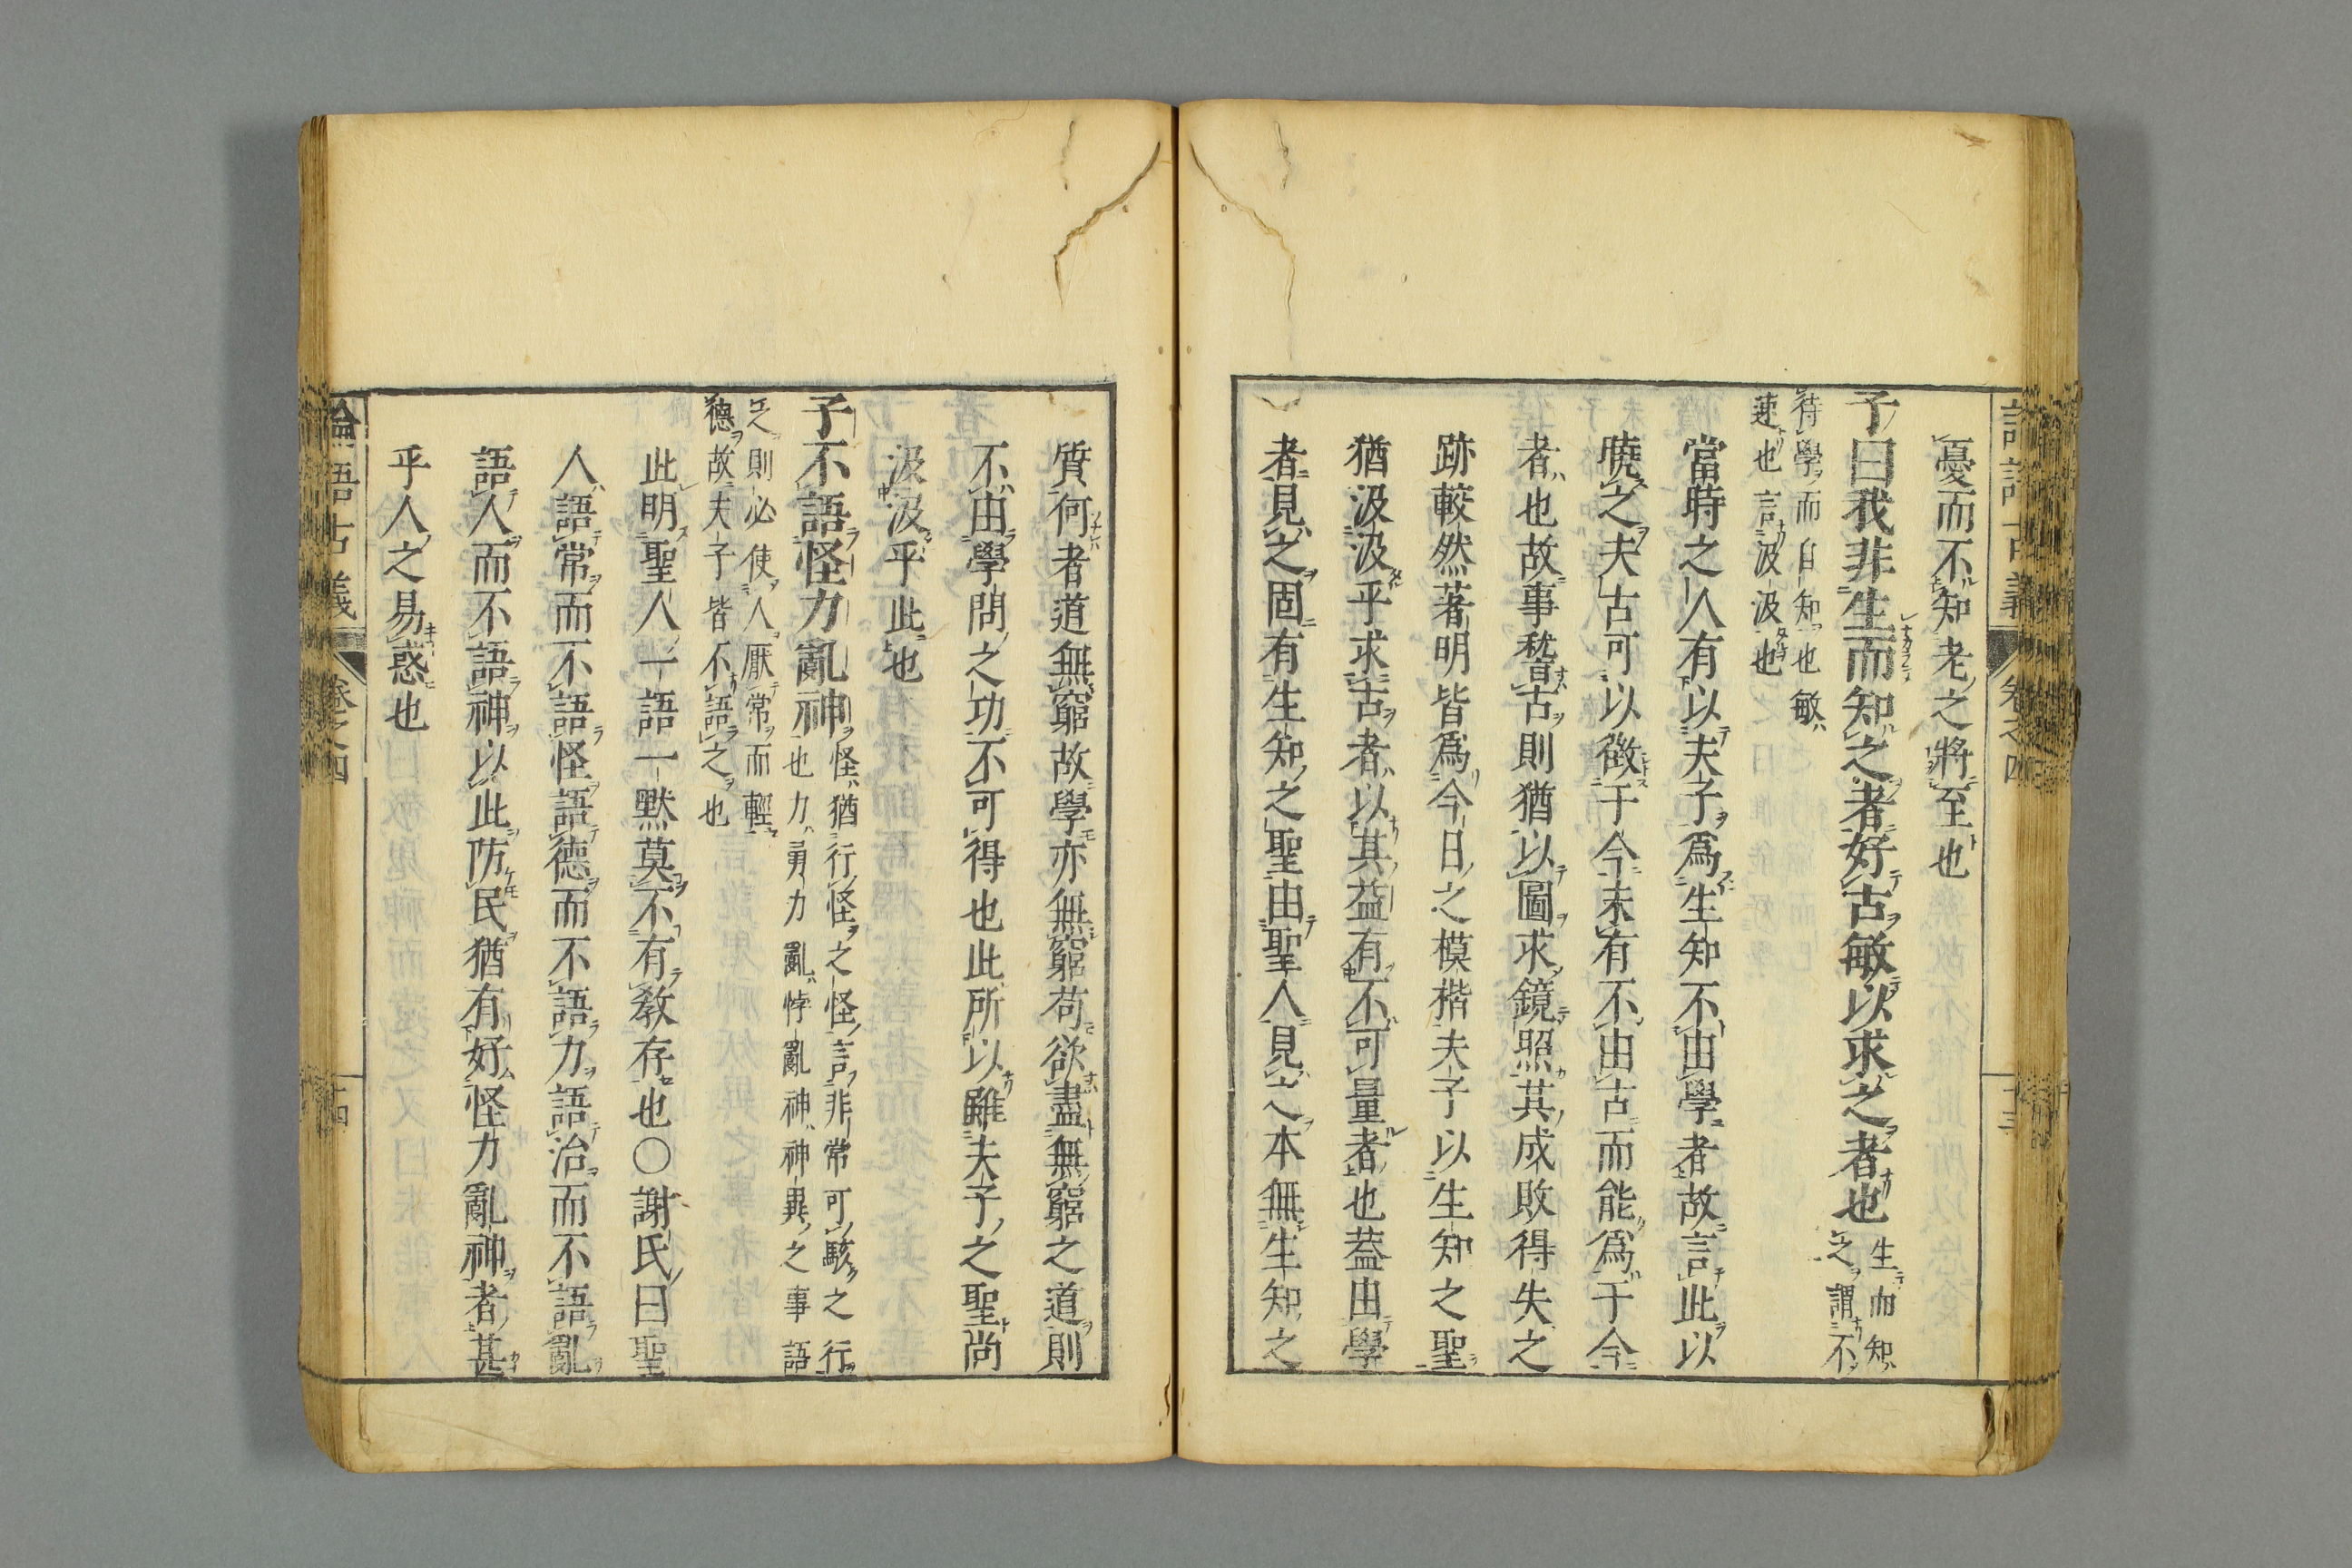 憂而不知老之將至也
子曰我非生而知之者好古敏以求之者也 生而知
之謂不
待學而自知也敏
速也言汲汲也
當時之人有以夫子爲生知不由學者故言此以
曉之夫古可以徴于今未有不由古而能爲于今
者也故事稽古則猶以圖求鏡照其成敗得失之
跡較然著明皆爲今日之模楷夫子以生知之聖
猶汲汲乎求古者以其益有不可量者也葢由學
者見之固有生知之聖由聖人見之本無生知之
質何者道無窮故學亦無窮苟欲盡無窮之道則
不由學問之功不可得也此所以雖夫子之聖尚
汲汲乎此也
子不語怪力亂神 怪猶行怪之怪言非常可駭之行
也力勇力亂悖亂神神異之事語
之則必使人厭常而輕
德故夫子皆不語之也
此明聖人一語一默莫不有教存也〇謝氏曰聖
人語常而不語怪語德而不語力語治而不語亂
語人而不語神以此防民猶有好怪力亂神者甚
乎人之易惑也
論語古義 卷之四 十四